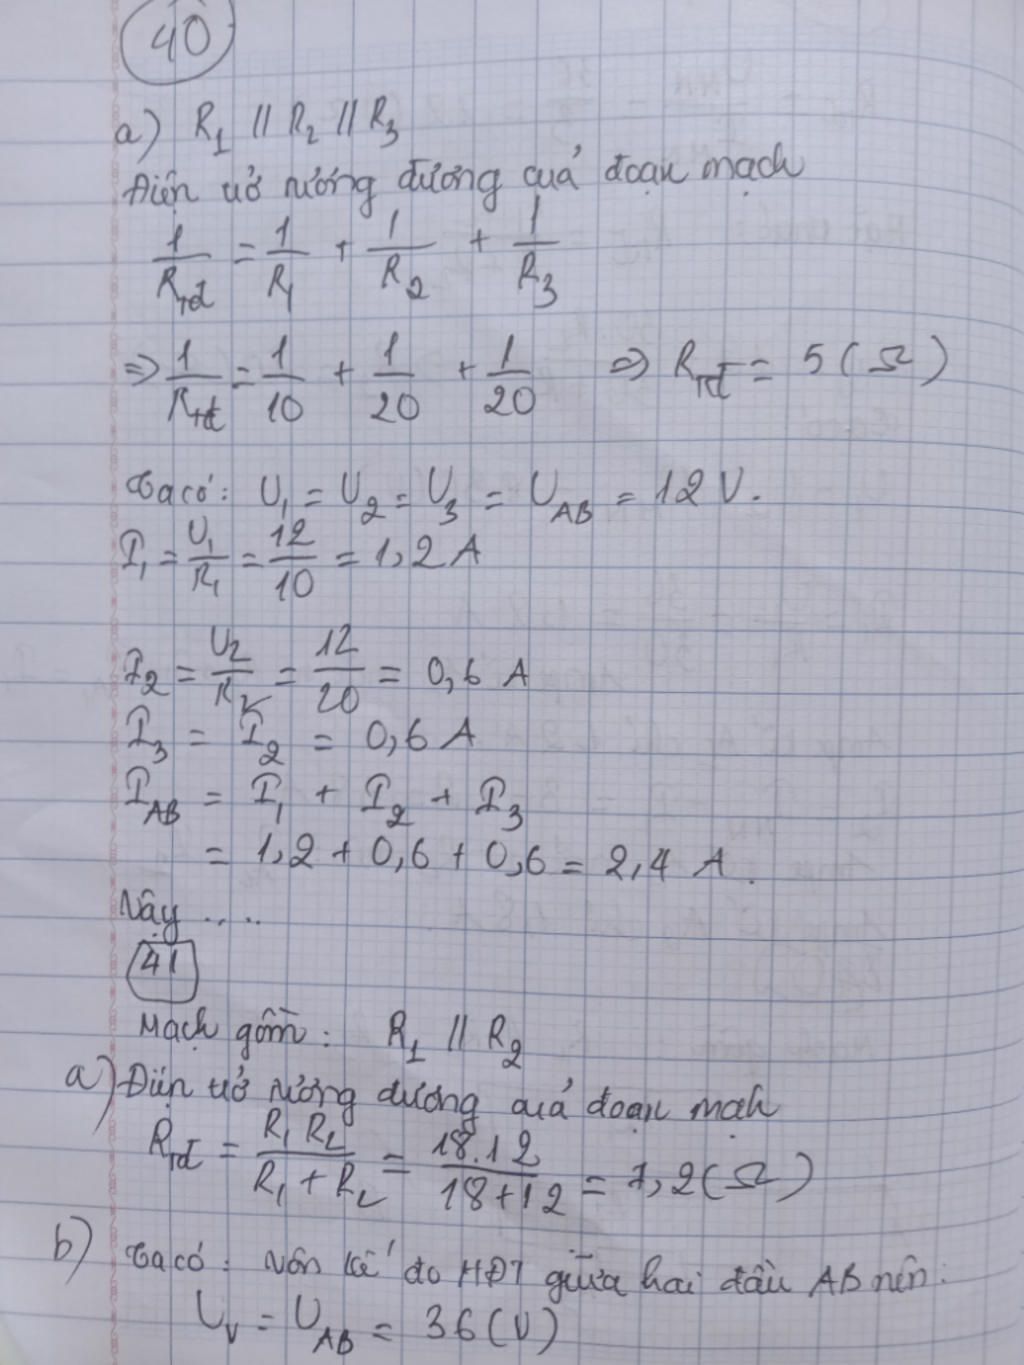 40
a) R₁ // R₂ // R₃
Điện trở tương đương của đoạn mạch
1/Rtđ = 1/R₁ + 1/R₂ + 1/R₃
=> 1/Rtđ = 1/10 + 1/20 + 1/20 => Rtđ = 5 (Ω)
Ta có: U₁ = U₂ = U₃ = U_AB = 12 V.
I₁ = U₁/R₁ = 12/10 = 1,2 A
I₂ = U₂/R₂ = 12/20 = 0,6 A
I₃ = I₂ = 0,6 A
I_AB = I₁ + I₂ + I₃
= 1,2 + 0,6 + 0,6 = 2,4 A.
Vậy ....
41
Mạch gồm: R₁ // R₂
a) Điện trở tương đương của đoạn mạch
Rtđ = R₁R₂/(R₁ + R₂) = 18.12/(18+12) = 7,2 (Ω)
b) Ta có: Vôn kế đo HĐT giữa hai đầu AB nên:
U_V = U_AB = 36 (V)